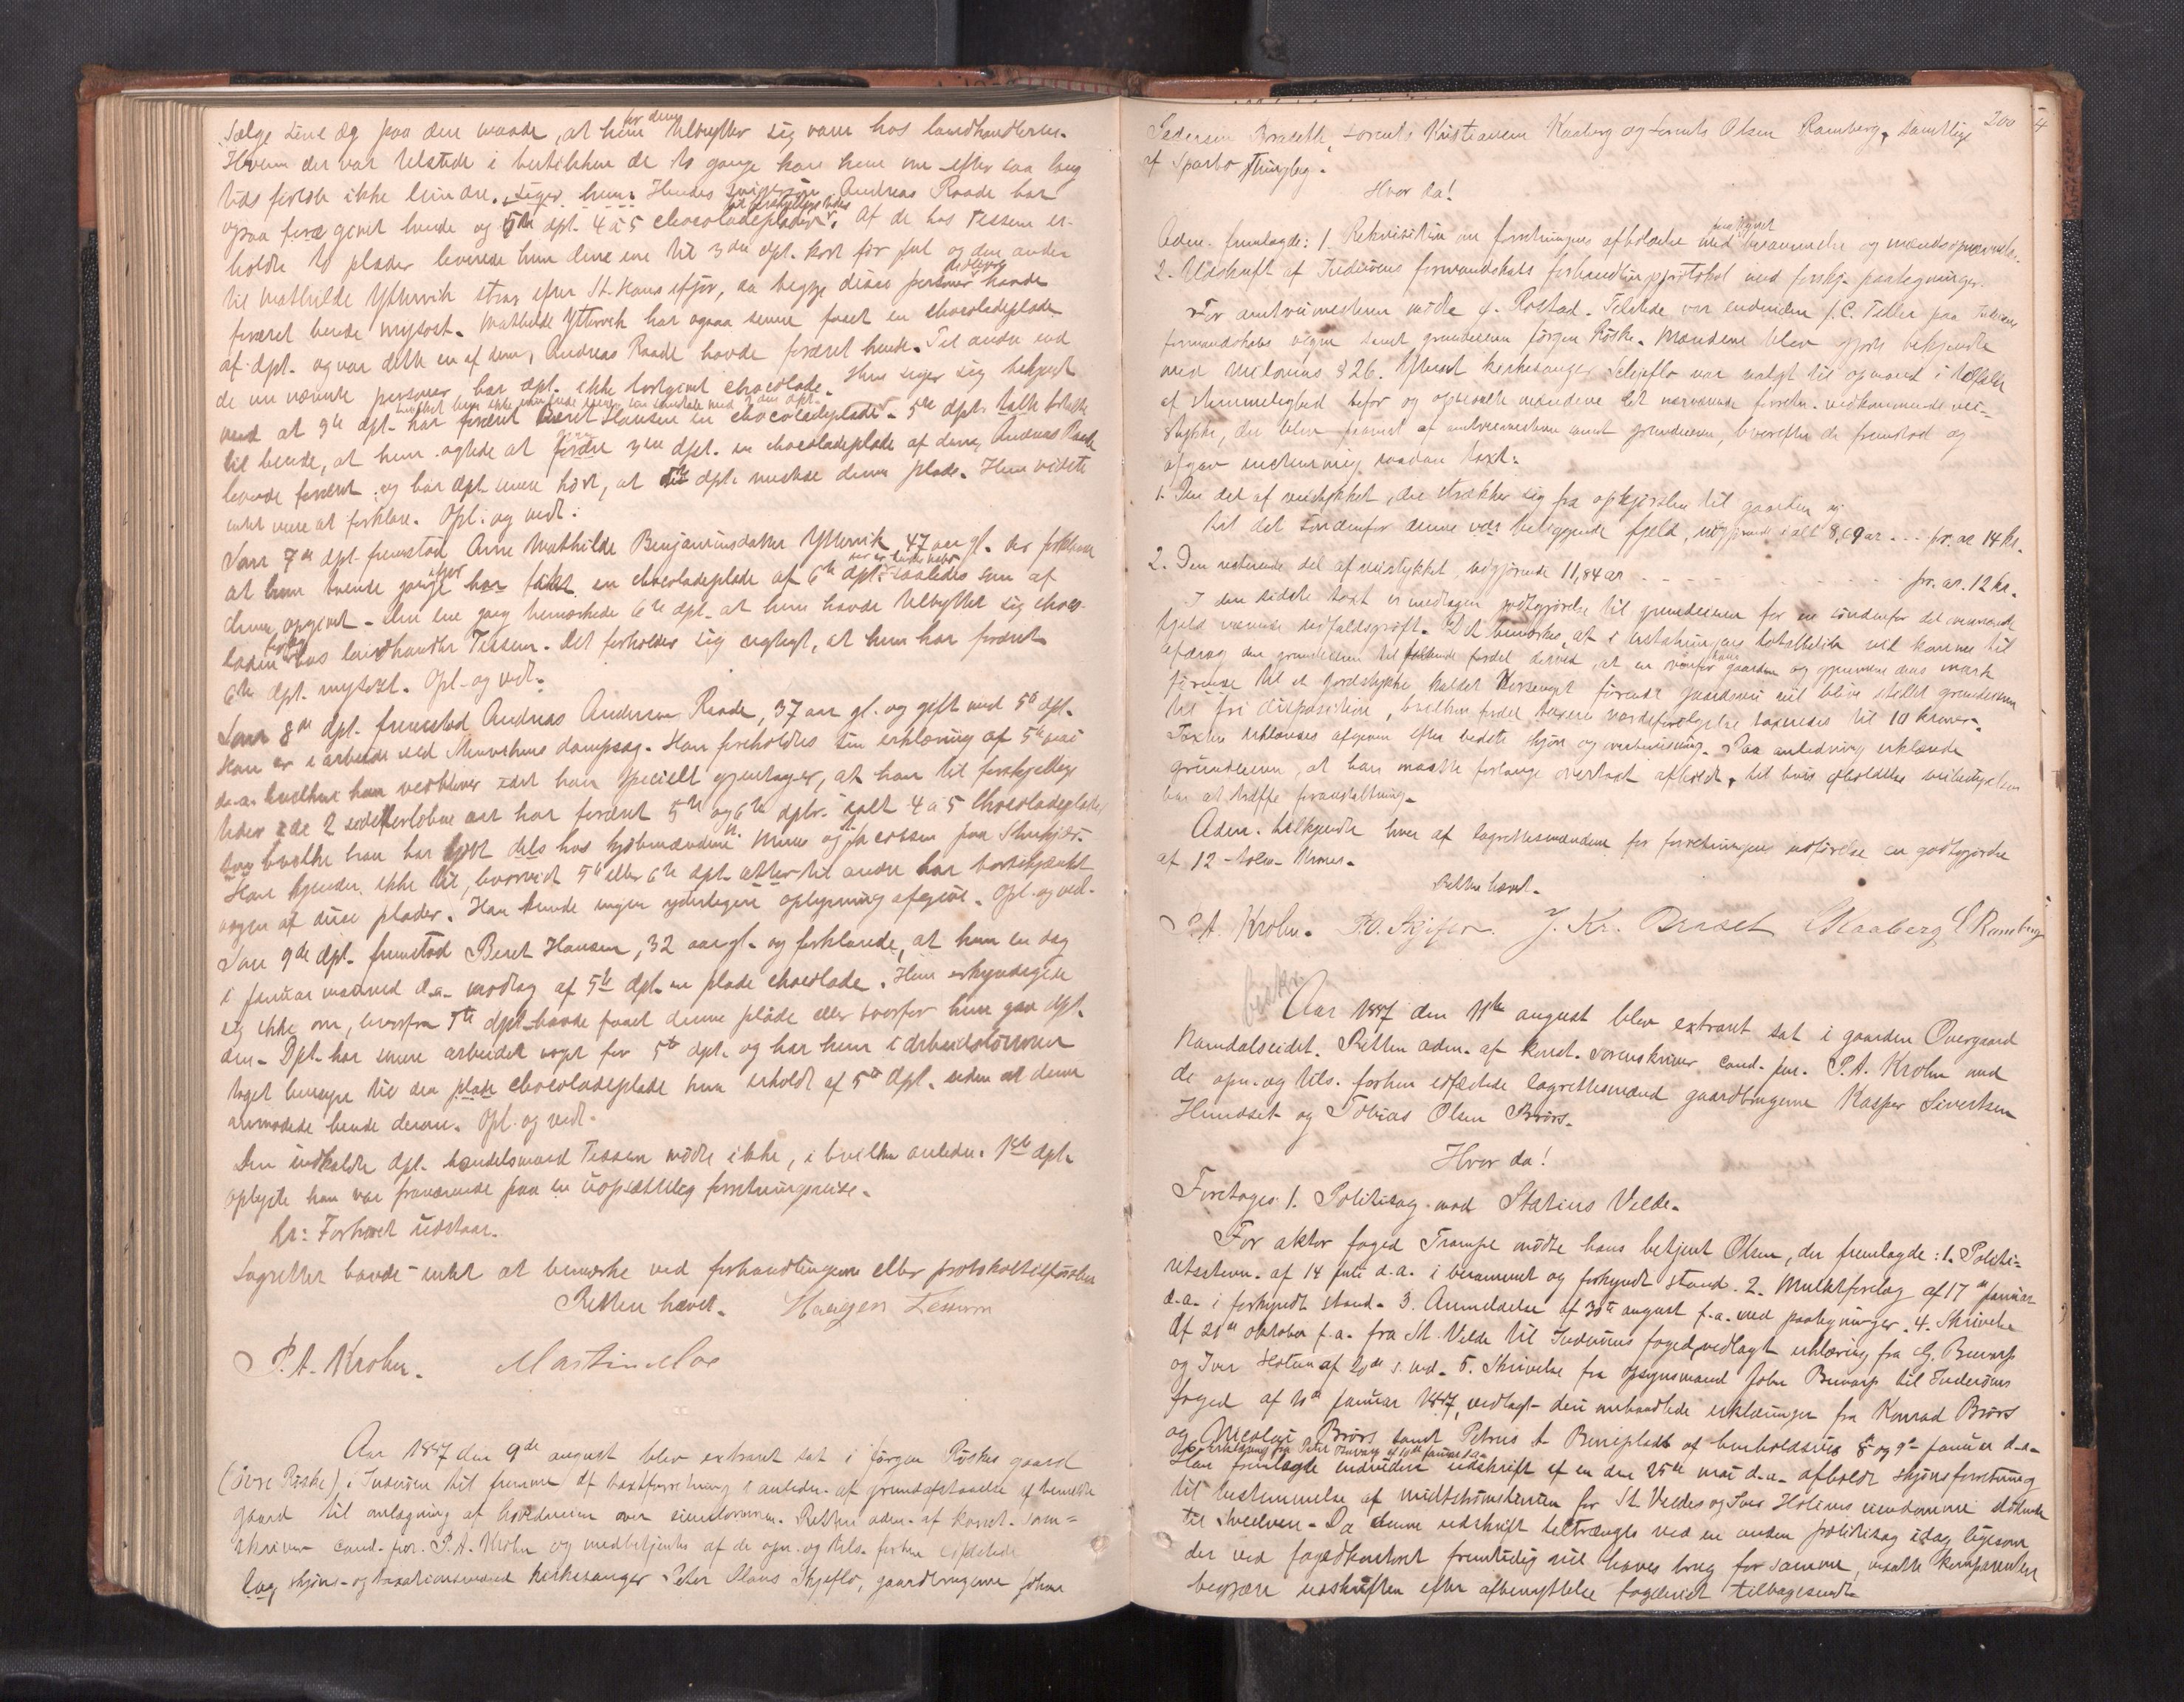 sælge sine æg paa den maade, at hun for dem tilbytter sig varer hos landhandleren.
Hvem der var tilstede i butikken de to gange kan hun nu efter saa lang
tids forløb ikke erindre, siger hun. Hendes svigersøn Andreas Raade har
ogsaa foræ givet hende og 5te dpt. 4 à 5 chocoladeplader. Af de hos Tessem er-
holdte to plader leverede hun den ene til 3die dpt. kort før jul og den anden
til Mathilde Yttervik strax efter St. Hans ifjor, da begge disse personer havde
foræret hende mysost. Mathilde Yttervik har ogsaa senere faaet en chocoladeplade
af dpt. og var dette en af dem, Andreas Raade havde foræret hende. Til andre end
de nu nævnte personer har dpt. ikke bortgivet chocolade. Hun siger sig bekjendt
med at 9de dpt. har foræret Beret Hansen en chocoladeplade. 5te dpt. talte
til hende, at hun agtede at foræe 3die dpt. en chocoladeplade af dem, Andreas Raade
havde foræret og har dpt. senere hørt, at 5te dpt. mistede denne plade. Hun vidste
intet mere at forklare. Opl. og vedt.
Som 7de dpt. fremstod Anne Mathilde Benjaminsdatter Yttervik, 47 aar gl. der forklarer
at hun tvende gange har faaet en chocoladeplade af 6te dpt. saaledes som af
denne opgivet. Den ene gang bemærkede 6te dpt. at hun havde tilbyttet sig choco-
laden hos landhandler Tessem. Det forholder sig rigtigt, at hun har foræret
6te dpt. mysost. Opl. og vedt.
Som 8de dpt. fremstod Andreas Andersen Raade, 37 aar gl. og gift med 5te dpt.
Han er i arbeide ved dampsag. Han foreholdtes sin erklæring af 5te mai
d.a. hvilken han vedblev idet han specielt gjentager, at han til forskjellige
tider i de 2 sidst forløbne aar har foræret 5te og 6te dpt. ialt 4 à 5 chocoladeplader
som hvilke han har kjøbt dels hos kjøbmændene og Jacobsen paa Stenkjær.
Han kjender ikke til, hvorvidt 5te eller 6te dpt. atter til andre har bortskjænket
nogen af disse plader. Han kunde ingen yderligere oplysning afgive. Opl. og ved-
Som 9de dpt. fremstod Beret Hansen, 32 aar gl. og forklarede, at hun en dag
i januar maaned d.a. modtog af 5te dpt. en plade chocolade. Hun erkyndigede
sig ikke om, hvorfra 5te dpt. havde faaet denne plade eller hvorfor hun gav dpt.
den. Dpt. har senere arbeidet noget for 5te dpt. og har hun i arbeidslønnen
taget hensyn til den plade chocoladeplade hun erholdt af 5te dpt. uden at denne
anmodede hende derom. Opl. og vedt.
Den indkaldte dpt. handelsmand Tessem mødte ikke, i hvilken anledn. 1ste dpt.
oplyste han var fraværende paa en uopsættelig forretningsreise.
kr: Forhøret udstaar.
Lagrettet havde intet at bemærke ved forhandlingerne eller protokoltilførslen
Retten hævet.
P. A. Krohn. Martin Moe
Aar 1887 den 9de august blev extraret sat i Jørgen Røskes gaard
(övre Røske) i Inderøen til fremme af taxtforretning i anledn. af grundafstaaelse af bemeldte
gaard til anlægning af hovedveien over eiendommen. Retten adm. af konst. soren=
skriver cand. jur. P. A. Krohn og medbetjentes af de opn. og tils. forhen edfæstede
lag skjøns- og taxationsmænd kirkesanger Peter Olaus Skjeflo, gaardbrugerne Johan
200
Pedersen Braseth, Lorents Kristiansen Kaaberg og Lorents Olsen Ramberg, samtlige
af Sparbo Thinglag.
Hvor da!
Adm. fremlagde: 1. Rekvisition om forretningens afholdelse med berammelse og mændsopnævnelse.
2. Udskrift af Inderøens formandskabs forhandlingsprotokol med forskj. paategninger.
For amtveimesteren mødte Rostad. Tilstede var endvidere J. C. Teller paa Inderøens
formandskabs vegne samt grundeieren Jørgen Røske. Mændene blev gjorte bekjendte
med veilovens § 26. Ifteret kirkesanger Skjeflo var valgt til opmand i tilfælde
af stemmelighed befor og opmaalte mændene det nærværende forretn. vedkommende vei-
stykke, der blev paavist af amtveimesteren samt grundeieren, hvorefter de fremstod og
afgav enstemmig saadan taxt:
1. Den del af veistykket, der strækker sig fra opkjørslen til gaarden og
til det søndenfor denne beliggende fjeld, udgjørende ialt 8,69 ar ... pr. ar 14 kr.
2. Den resterende del af veistykket, udgjørende 11,84 ar ... pr. ar. 12 kr.
I den sidste taxt er medtagen godtgjørelse til grundeieren for en søndenfor det nævnende
fjeld værende Det bemærkes, at i erstatningens totalbeløb vil komme til
afdrag den grundeieren tilfaldende fordel derved, at en nordfor gaarden og gjennem dens mark
førende til et jordstykke kaldet førende gaardsvei vil blive stillet grundeieren
til fri disposition, hvilken fordel værdiforøgelse taxeredes til 10 kroner.
Taxten erklæredes afgiven efter bedste skjøn og overbevisning. Paa anledning erklærede
grundeieren, at han maatte forlange overtaxt afholdt, til hvis afholdelse veibestyrelsen
har at træffe foranstaltning.
Adm. tilkjendte hver af lagrettesmændene for forretningens udførelse en godtgjørelse
af 12 tolv Kroner.
Retten hævet.
P. A. Krohn. P. O. Skjeflo. J. Kr. Braset L Kaaberg L Ramberg
Aar 1887 den 11te august blev extraret sat i gaarden Overgaard
Namdalseidet. Retten adm. af konst. sorenskriver cand. jur. P. A. Krohn med
de opn. og tils. forhen edfæstede lagrettesmænd gaardbrugerne Kasper Sivertsen
Hundset og Tobias Olsen Brørs.
Hvor da!
Foretoges 1. Politisag mod Statius Velde.
For aktor foged Trampe mødte hans betjent Olsen, der fremlagde: 1. Politi=
retsstevn. af 14 juli d.a. i berammet og forkyndt stand. 2. Mulktforelæg af 17de januar
d.a. i forkyndt stand. 3. Anmeldelse af 30te august f.a. med paategninger. 4. Skrivelse
af 21de oktober f.a. fra St. Velde til Inderøens foged, vedlagt erklæring fra G. Buvarp
og Iver Holien af 20de s. md. 5. Skrivelse fra opsynsmand John Buvarp til Inderøens
foged af 10de januar 1887, vedlagt deri omhandlede erklæringer fra Konrad Brørs
og Nicolai Brørs samt Petrus A Benisplads af henholdsvis 8de og 9de januar d.a.
Han fremlagte endvidere udskrift af en den 25de mai d.a. afholdt skjønsforretning
til bestemmelse af midtstrømslinien for St. Veldes og Iver Holiens eiendomme stødende
til Da denne udskrift tiltrænges ved en anden politisag idag ligesom
der ved fogedkontoret fremtidig vil haves brug for samme, maatte komparenten
begjære udskriften efter afbenyttelse tilbagesendt.